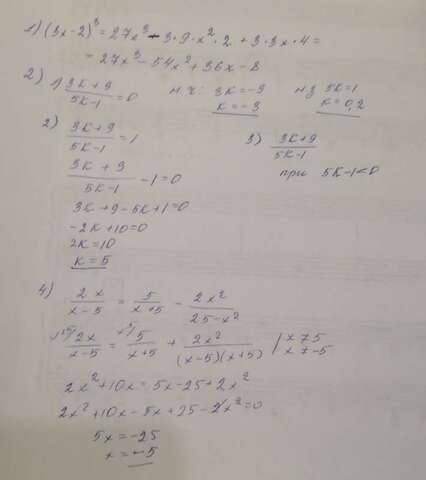 1) (3x-2)³ = 27x³ - 3·9·x²·2 + 3·3x·4 =
= 27x³ - 54x² + 36x - 8
2) 1) (3k+9)/(5k-1) = 0 н.ч: 3k=-9 н.з 5k=1
k=-3 k=0,2
2) (3k+9)/(5k-1) = 1 3) (3k+9)/(5k-1)
(3k+9)/(5k-1) - 1 = 0 при 5k-1<0
3k+9-5k+1=0
-2k+10=0
2k=10
k=5
4) 2x/(x-5) = 5/(x+5) - 2x²/(25-x²)
2x/(x-5) = 5/(x+5) + 2x²/((x-5)(x+5)) | x≠5
x≠-5
2x²+10x=5x-25+2x²
2x²+10x-5x+25-2x²=0
5x=-25
x=-5